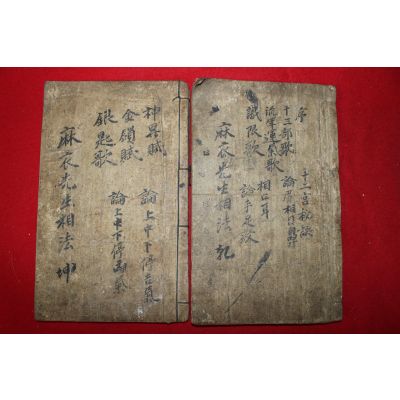 序
十三部歌
流年運氣歌
識限歌
十二宮秘訣
相口耳
論手足
麻衣先生相法 乾
神異賦
金鎖賦
銀匙歌
論上中下停吉氣
論上中下停
麻衣先生相法 坤